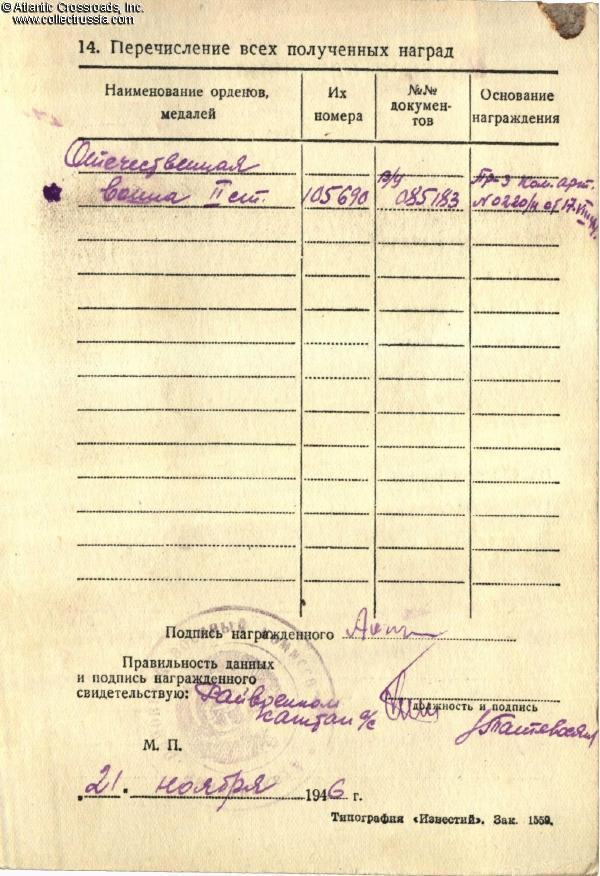 © Atlantic Crossroads, Inc.
www.collectrussia.com
14. Перечисление всех полученных наград
Наименование орденов, медалей
Их номера
№№ докумен-тов
Основание награждения
Отечественная
война II ст.
105690
в/у
085183
Пр-з Ком. арт.
№ 0220/н от 17.
Подпись награжденного
Правильность данных
и подпись награжденного
свидетельствую: Райвоенком
капитан а/с
должность и подпись
М. П.
„21“ ноября 1946 г.
Типография «Известий». Зак. 1559.